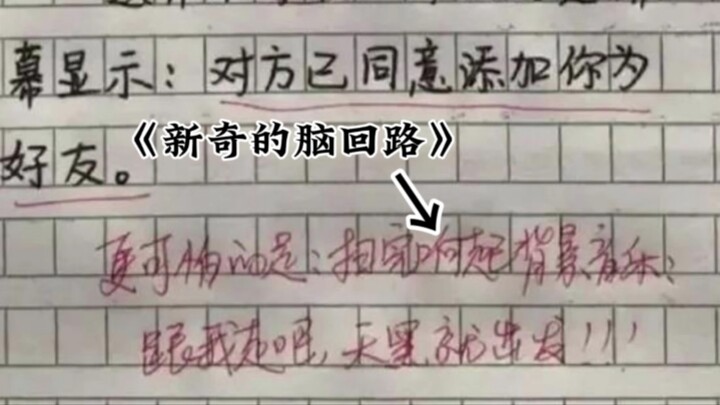 幕显示：对方已同意添加你为
好友。
《新奇的脑回路》
更可怕的是：扫完响起背景音乐：
跟我走吧，天黑就出发！！！